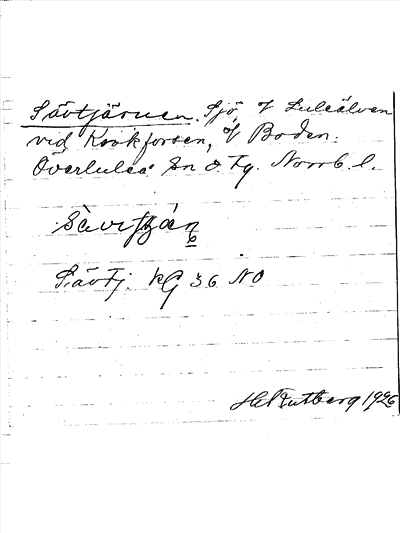 Sävtjärnen. Sjö, V Luleälven
vid Krokforsen, V Boden.
Överluleå Sn o. Tg. Norrb. l.
Sävtj. KG 36 NO
H. Rutberg 1926